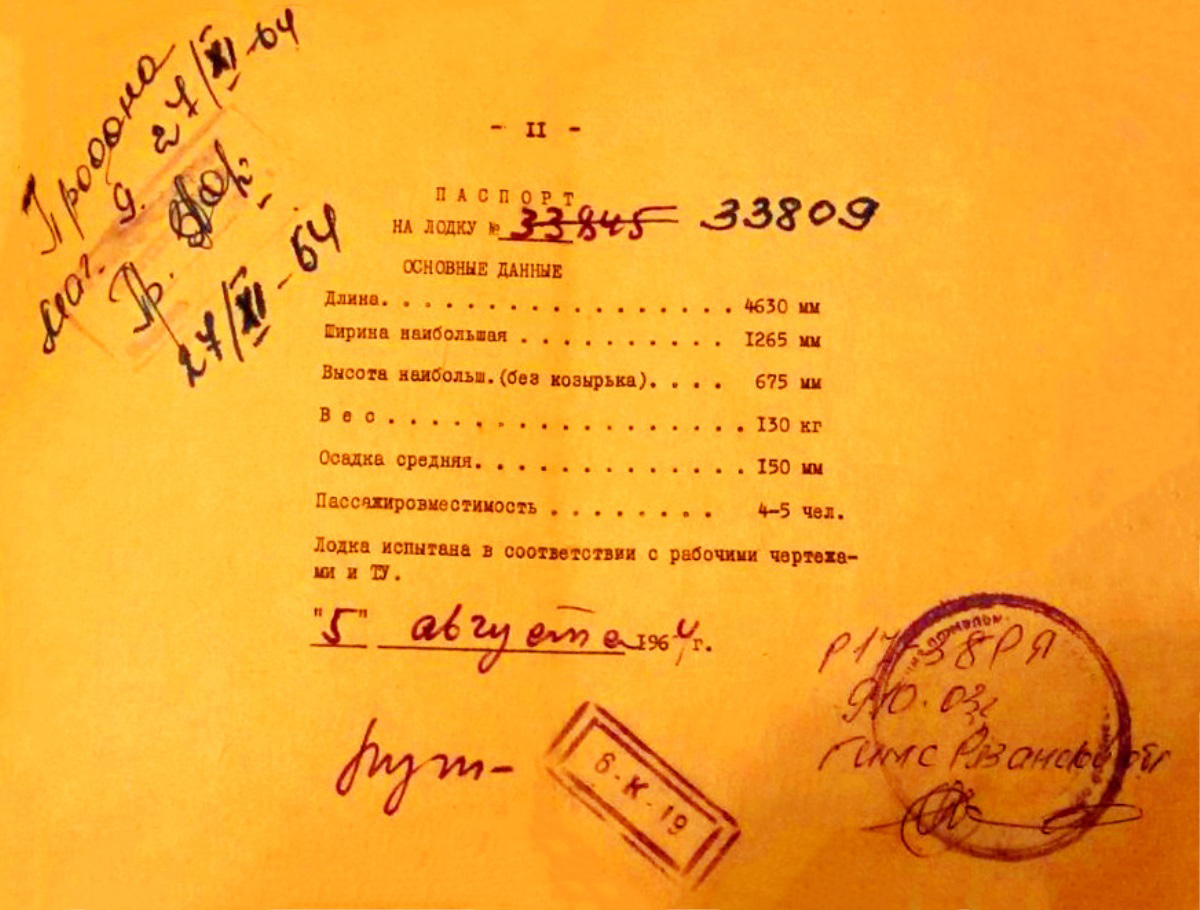 Продана
27/XI-64
маг.
27/XI-64
- II -
ПАСПОРТ
НА ЛОДКУ № 33845 33809
ОСНОВНЫЕ ДАННЫЕ
Длина. . . . . . . . . . . . . . . . . 4630 мм
Ширина наибольшая . . . . . . . . . . I265 мм
Высота наибольш.(без козырька). . . . 675 мм
В е с . . . . . . . . . . . . . . . . . I30 кг
Осадка средняя. . . . . . . . . . . . . I50 мм
Пассажировместимость . . . . . . . . 4-5 чел.
Лодка испытана в соответствии с рабочими чертежа-
ми и ТУ.
"5" августа 1964 г.
6-К-19
Р17-38РЯ
гимс Рязанской обл